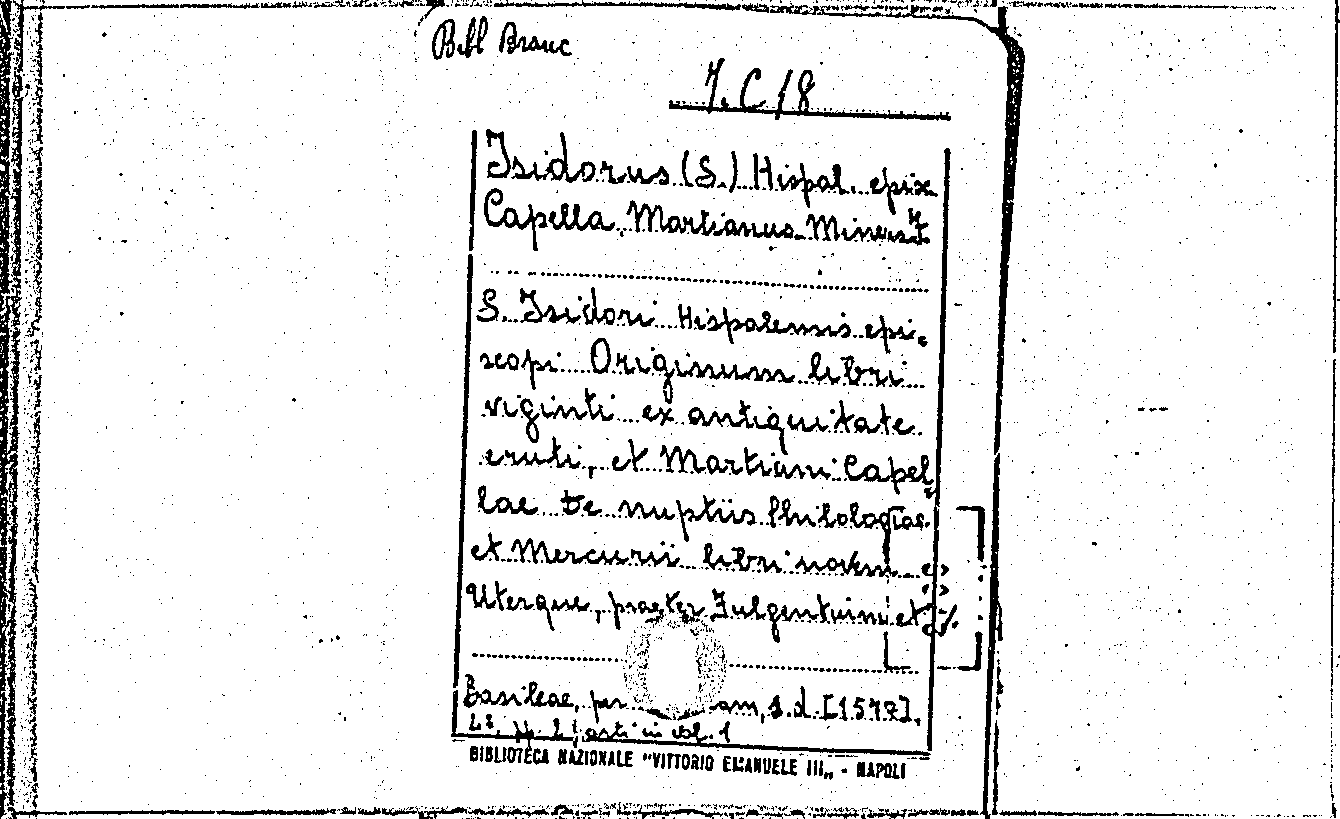 Bibl Branc
7. C 18
Isidorus (S.) Hispal. epix
Capella Martianus Mineus
S. Isidori Hispalensis epi-
scopi Originum libri
viginti ex antiquitate
eruti, et Martiani Capel
lae De nuptiis Philologiae
et Mercurii libri novem
Uterque, praeter Fulgentium et ./.
Basileae, per am, s.d. [1577].
in vol. 1
BIBLIOTECA NAZIONALE "VITTORIO EMANUELE III„ - NAPOLI